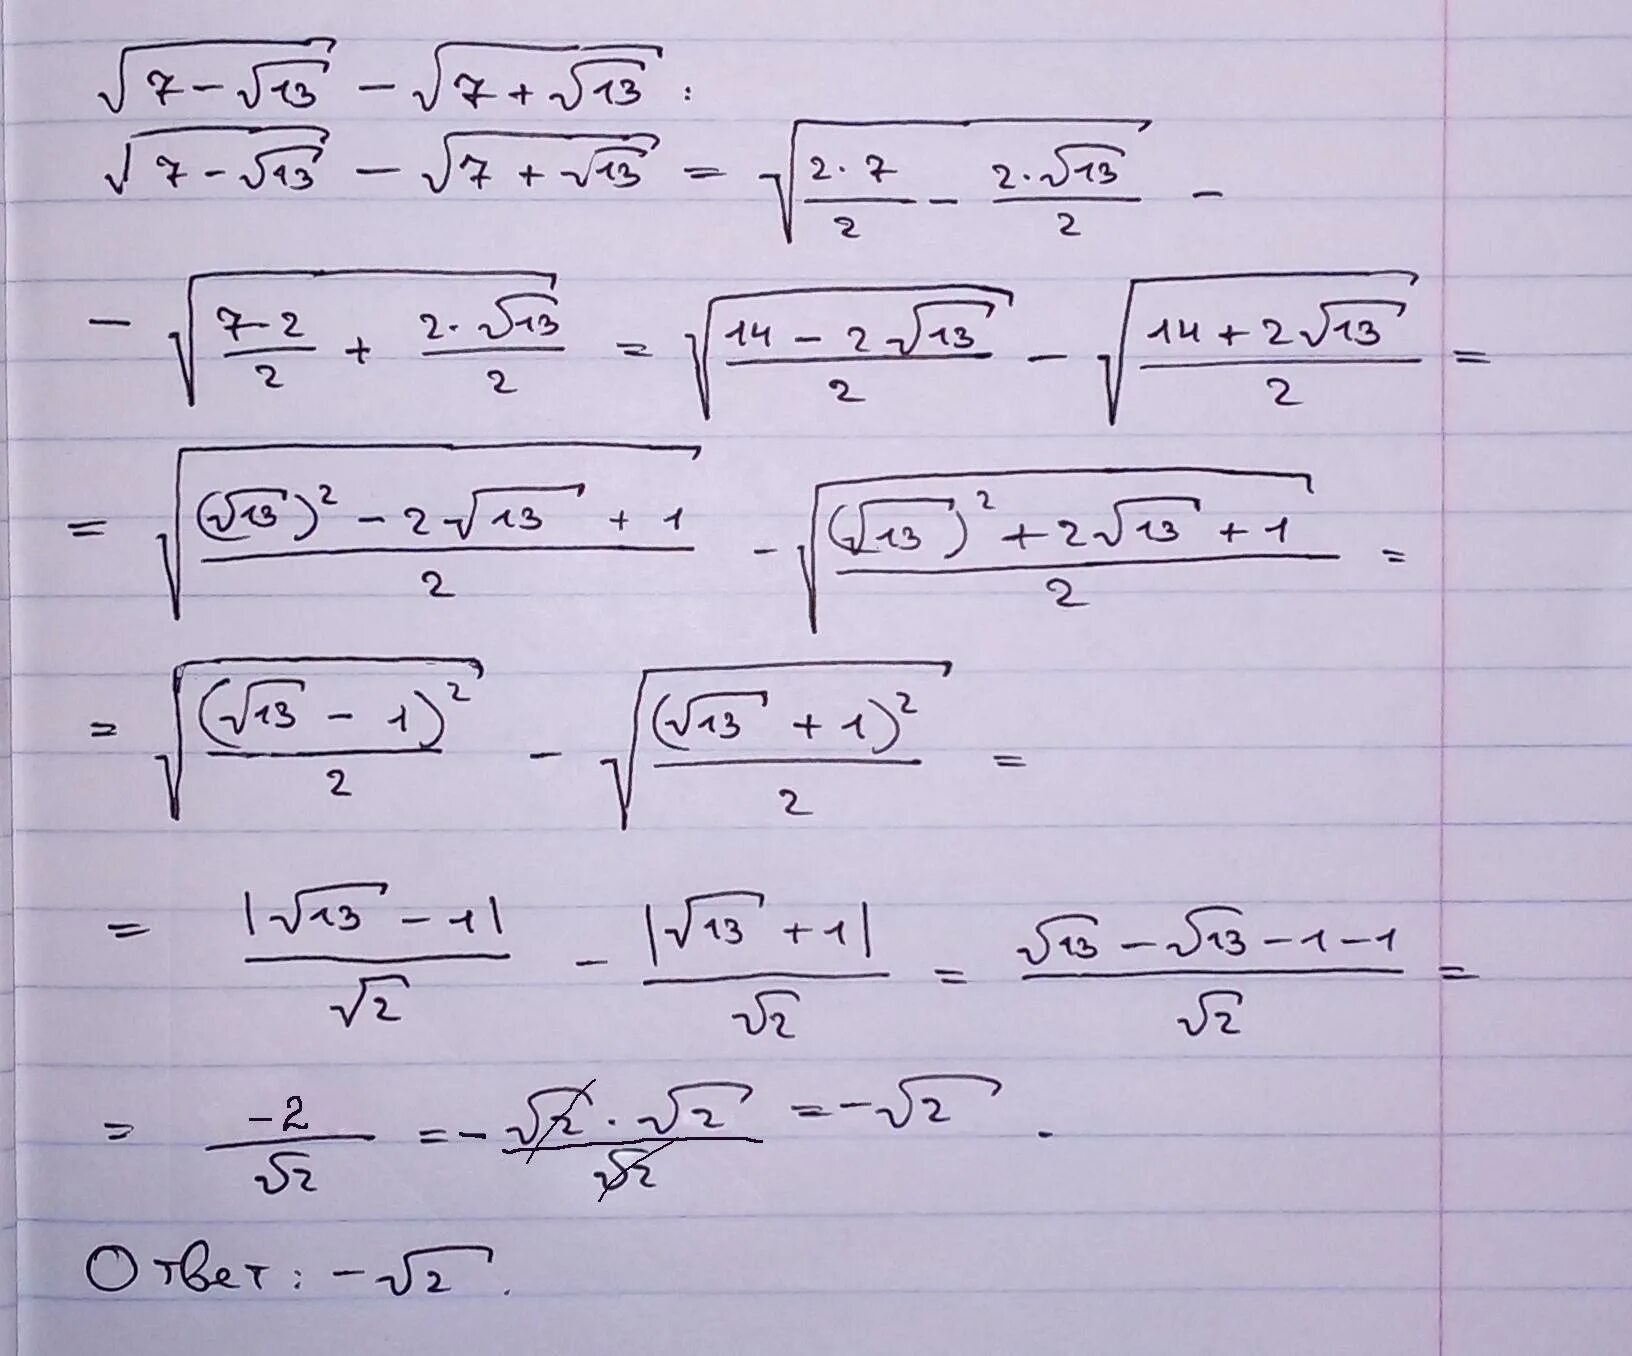 √(7 − √13) − √(7 + √13) :
√(7 − √13) − √(7 + √13) = √((2 · 7)/2 − (2 · √13)/2) −
− √((7 · 2)/2 + (2 · √13)/2) = √((14 − 2√13)/2) − √((14 + 2√13)/2) =
= √(((√13)² − 2√13 + 1)/2) − √(((√13)² + 2√13 + 1)/2) =
= √((√13 − 1)²/2) − √((√13 + 1)²/2) =
= |√13 − 1|/√2 − |√13 + 1|/√2 = (√13 − √13 − 1 − 1)/√2 =
= −2/√2 = − (√2 · √2)/√2 = −√2 .
Ответ: −√2 .